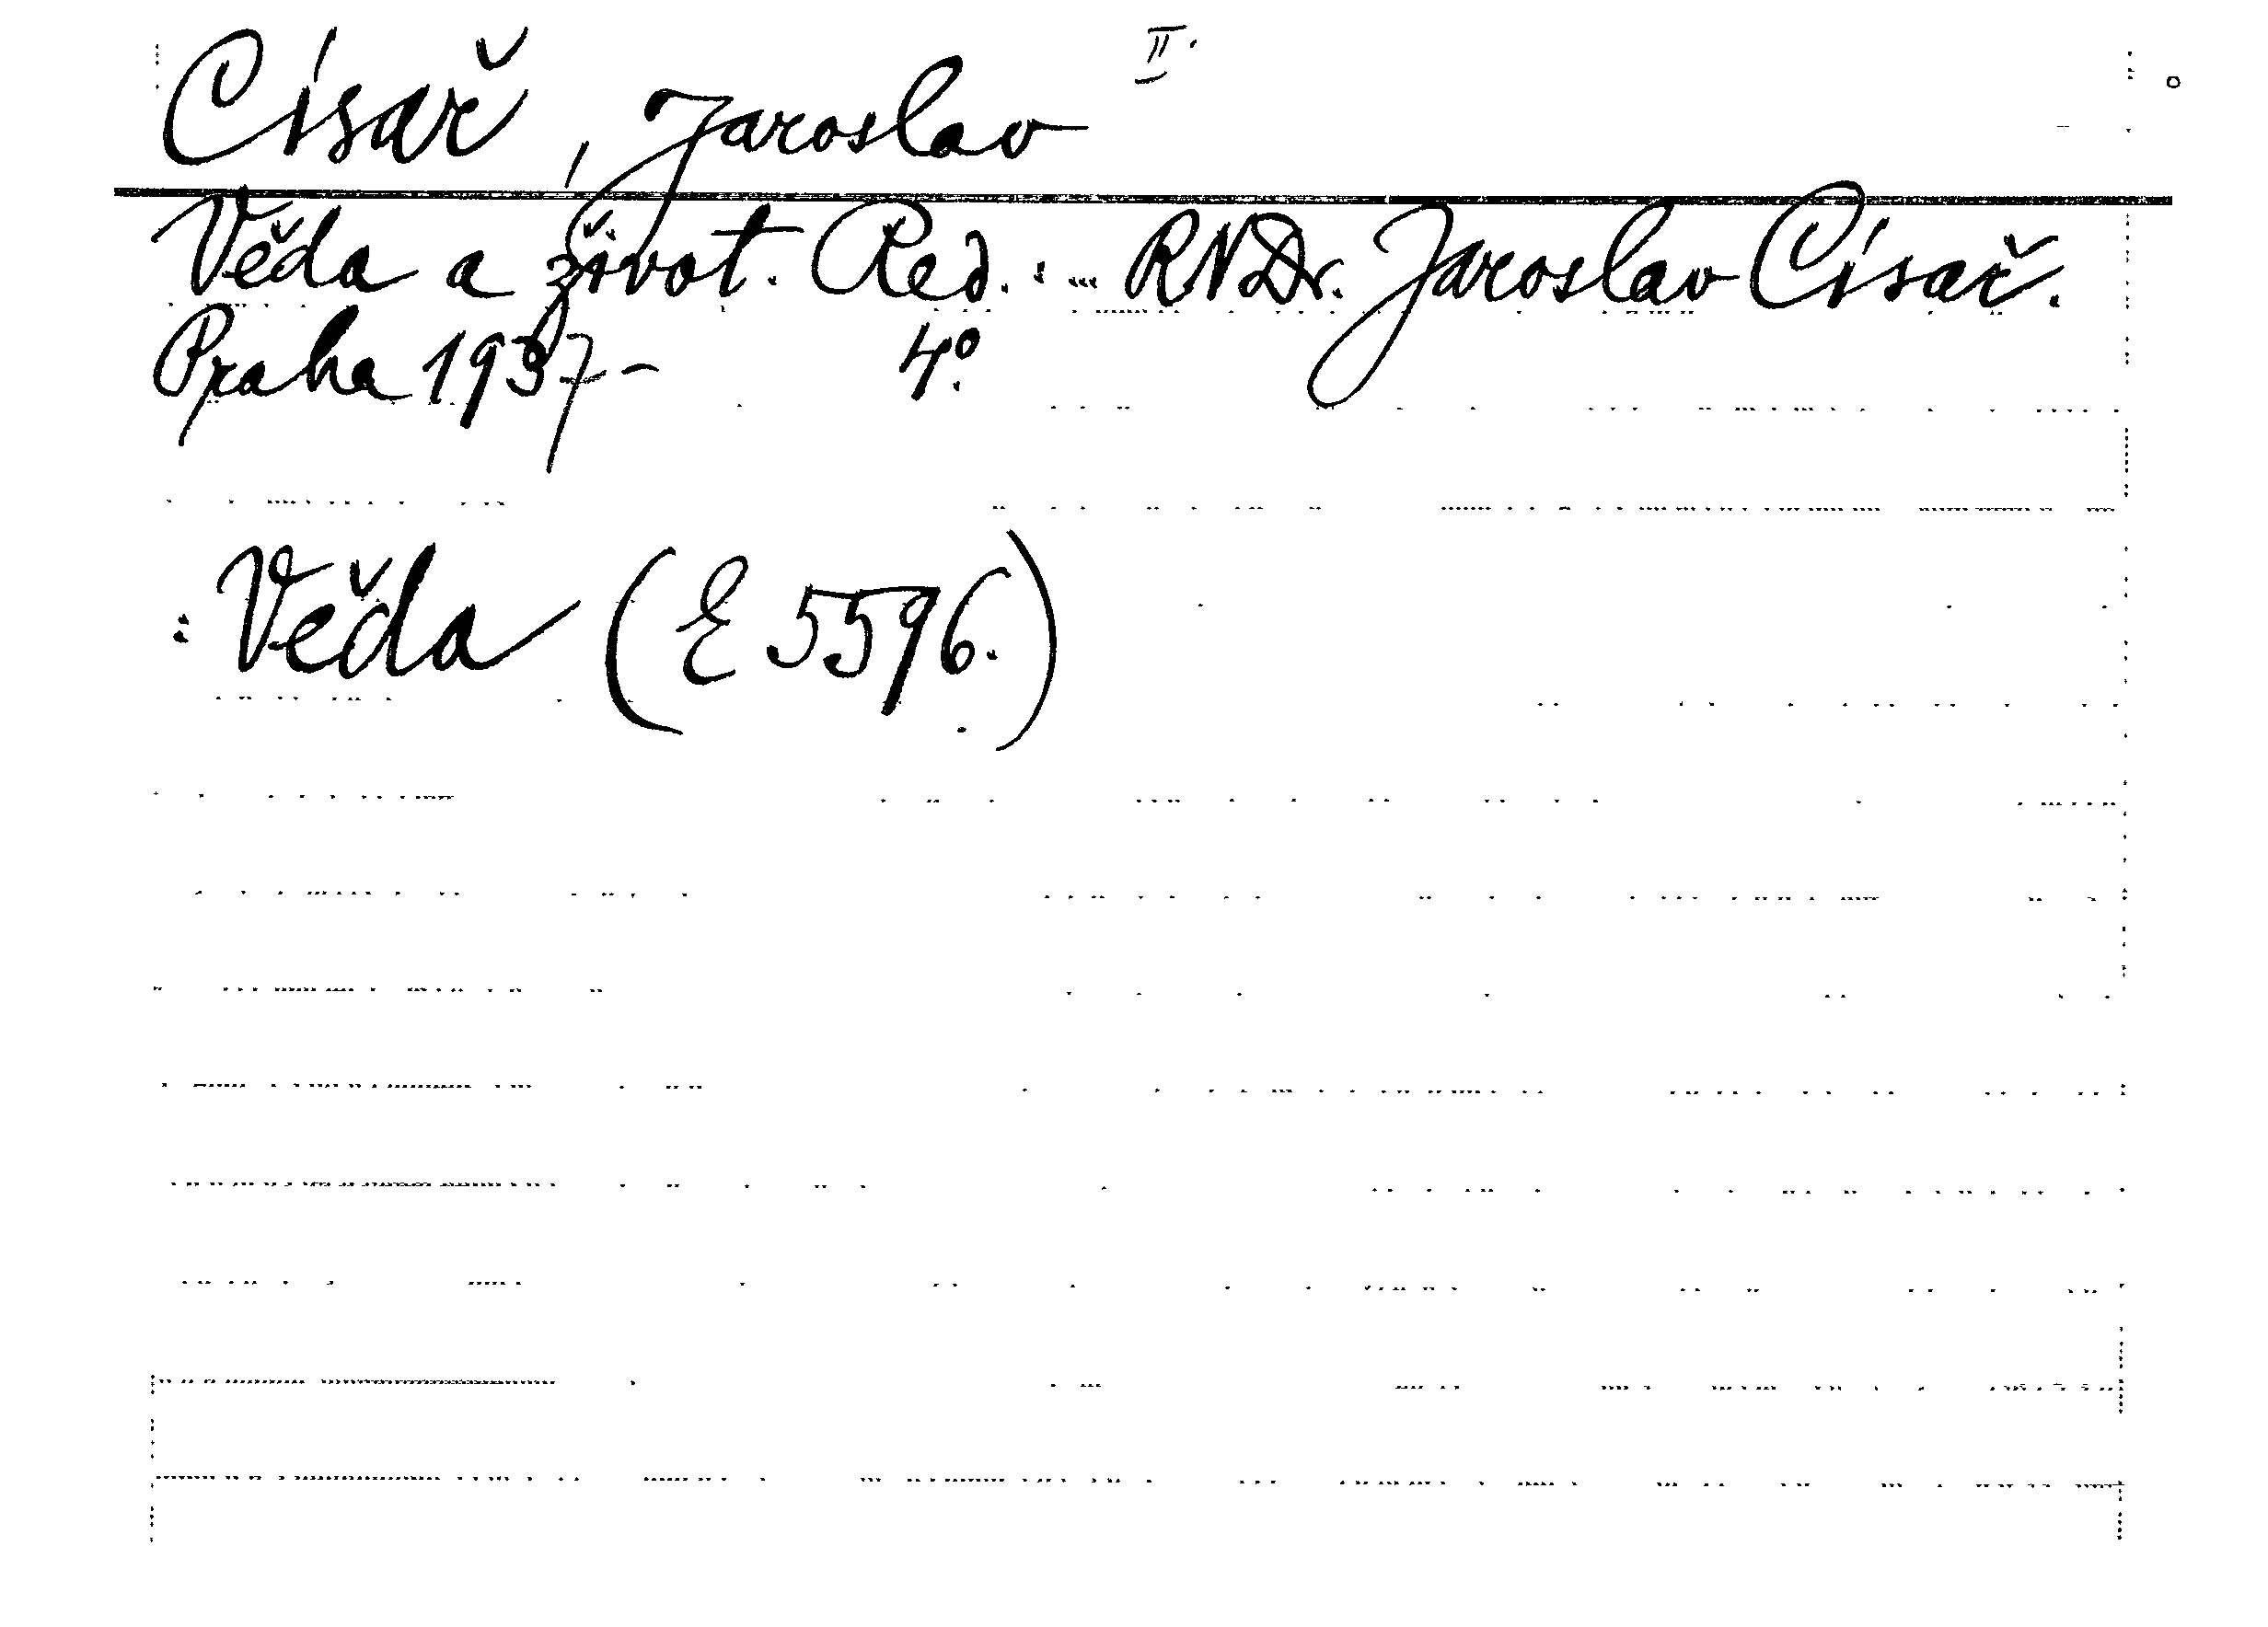 Císař, Jaroslav II.
Věda a život. Red.: ... RNDr. Jaroslav Císař.
Praha 1937- 4°.
: Věda (E 5596.)